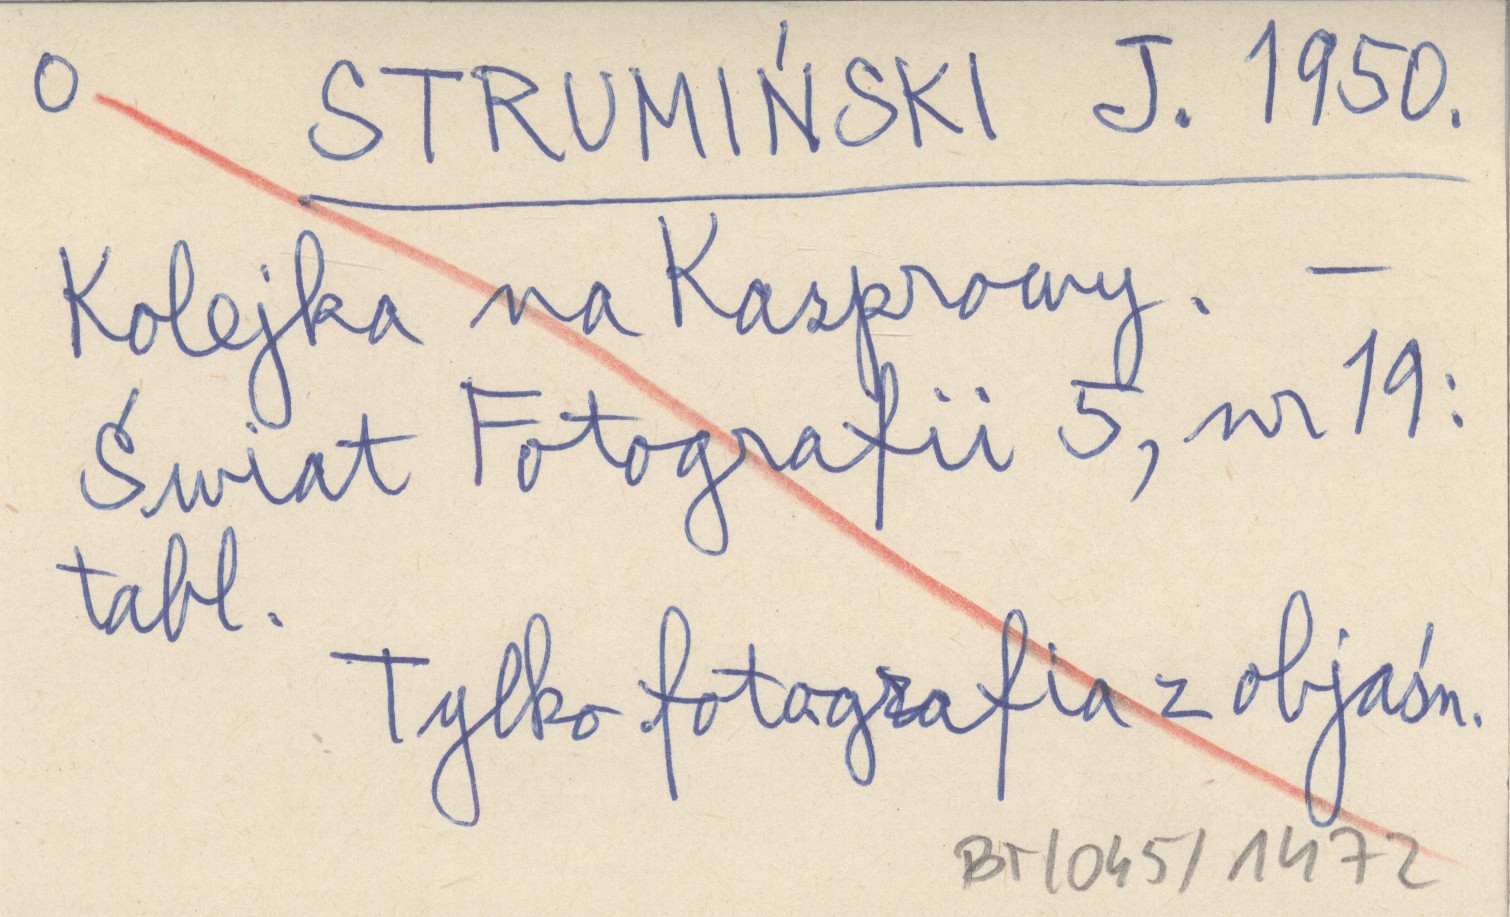 O STRUMIŃSKI J. 1950.
Kolejka na Kasprowy. —
Świat Fotografii 5, nr 19:
tabl.
Tylko fotografia z objaśn.
BT/045/1472